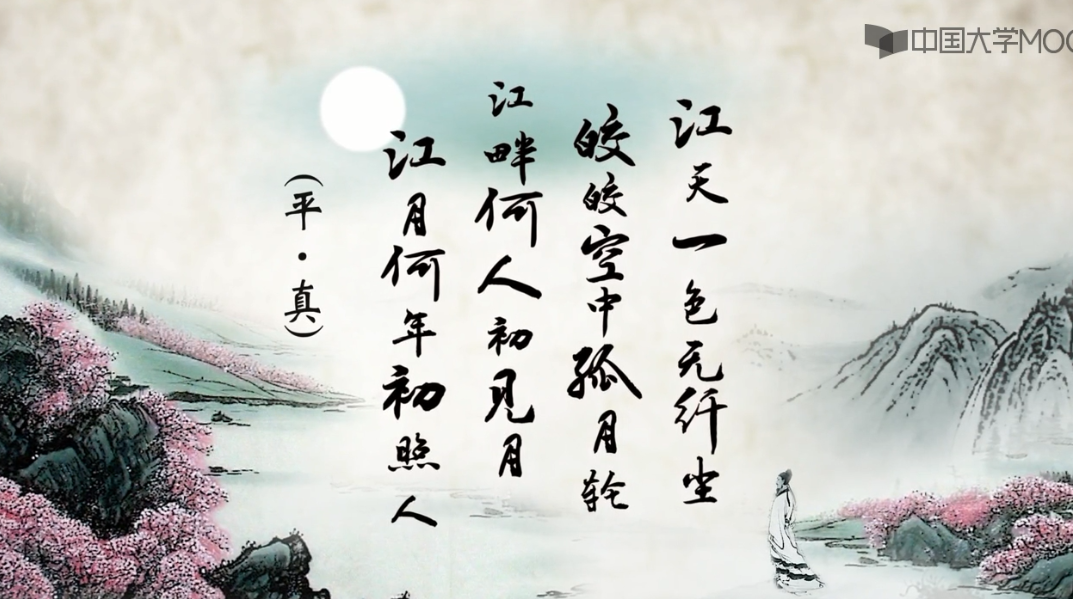 中国大学MOO
江天一色无纤尘
皎皎空中孤月轮
江畔何人初见月
江月何年初照人
（平·真）